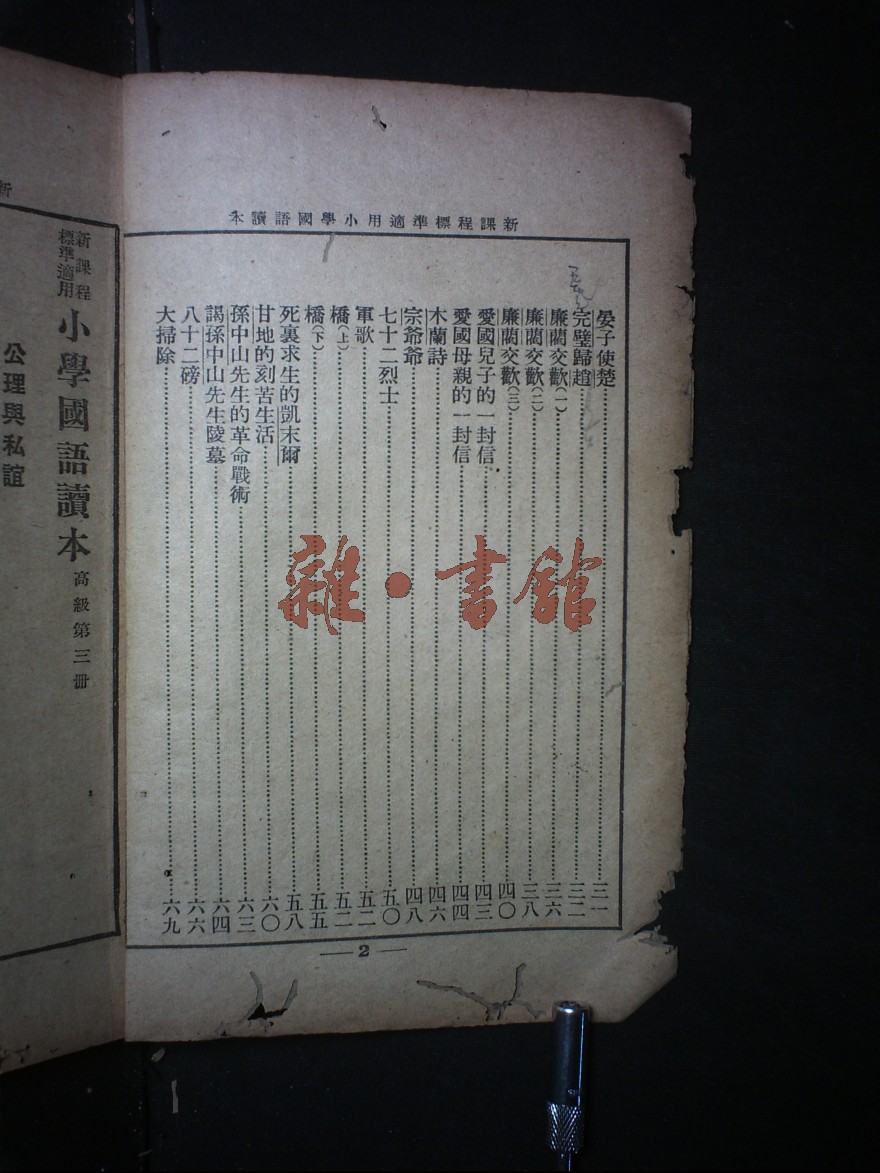 新課程標準適用小學國語讀本
晏子使楚……三一
完璧歸趙……三二
廉藺交歡(一)……三六
廉藺交歡(二)……三八
廉藺交歡(三)……四〇
愛國兒子的一封信……四三
愛國母親的一封信……四四
木蘭詩……四六
宗爺爺……四八
七十二烈士……五〇
軍歌……五二
橋(上)……五二
橋(下)……五五
死裏求生的凱末爾……五八
甘地的刻苦生活……六〇
孫中山先生的革命戰術……六三
謁孫中山先生陵墓……六四
八十二磅……六六
大掃除……六九
— 2 —
新
新課程標準適用 小學國語讀本 高級第三冊
公理與私誼
雜·書館